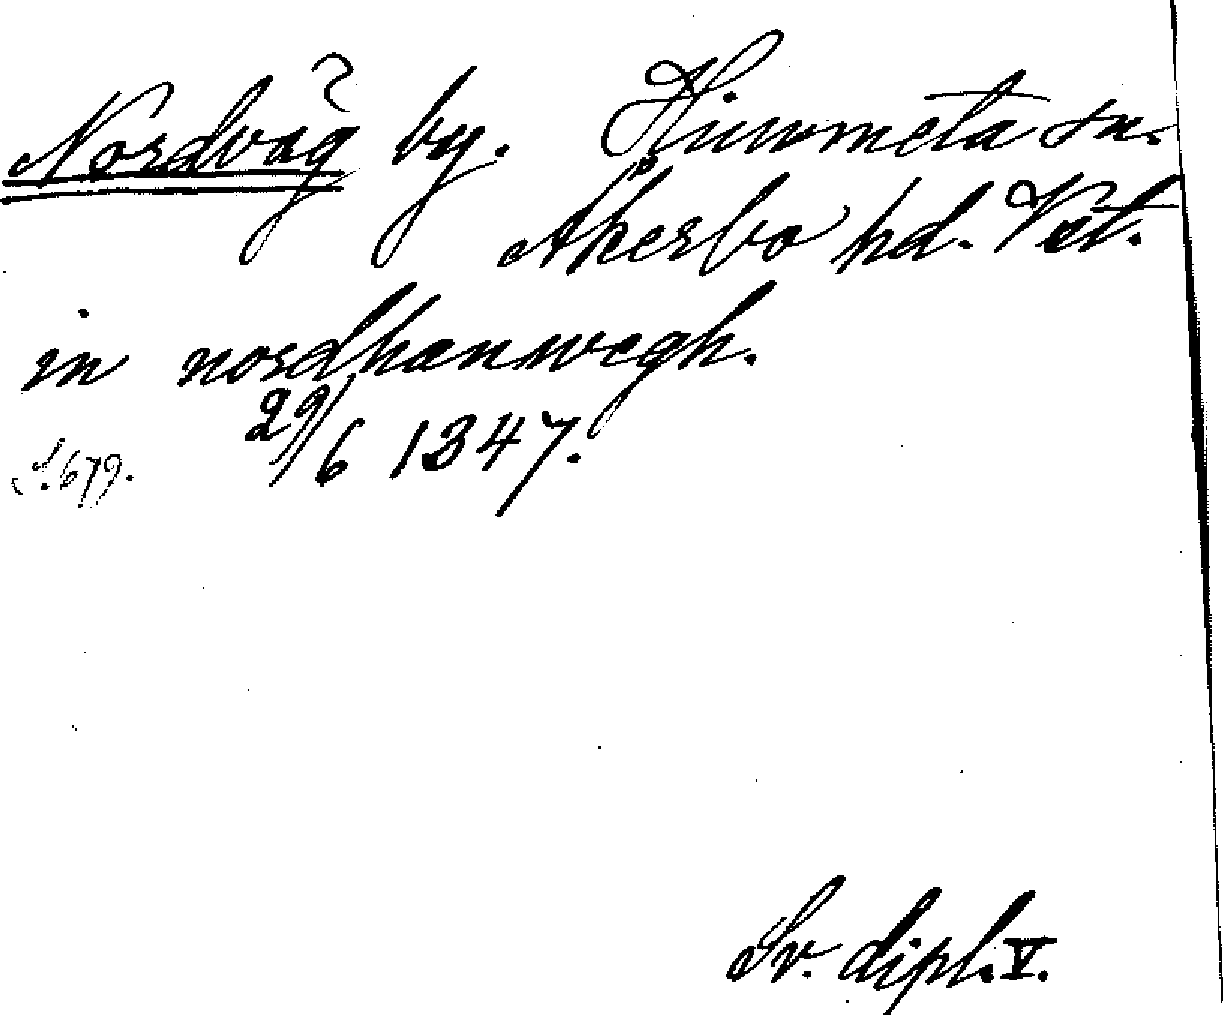 Nordväg? by. Himmeta sn.
Åkerbo hd. Vstl.
in nordhanwegh.
29/6 1347.
S. 679.
Sv. dipl. V.